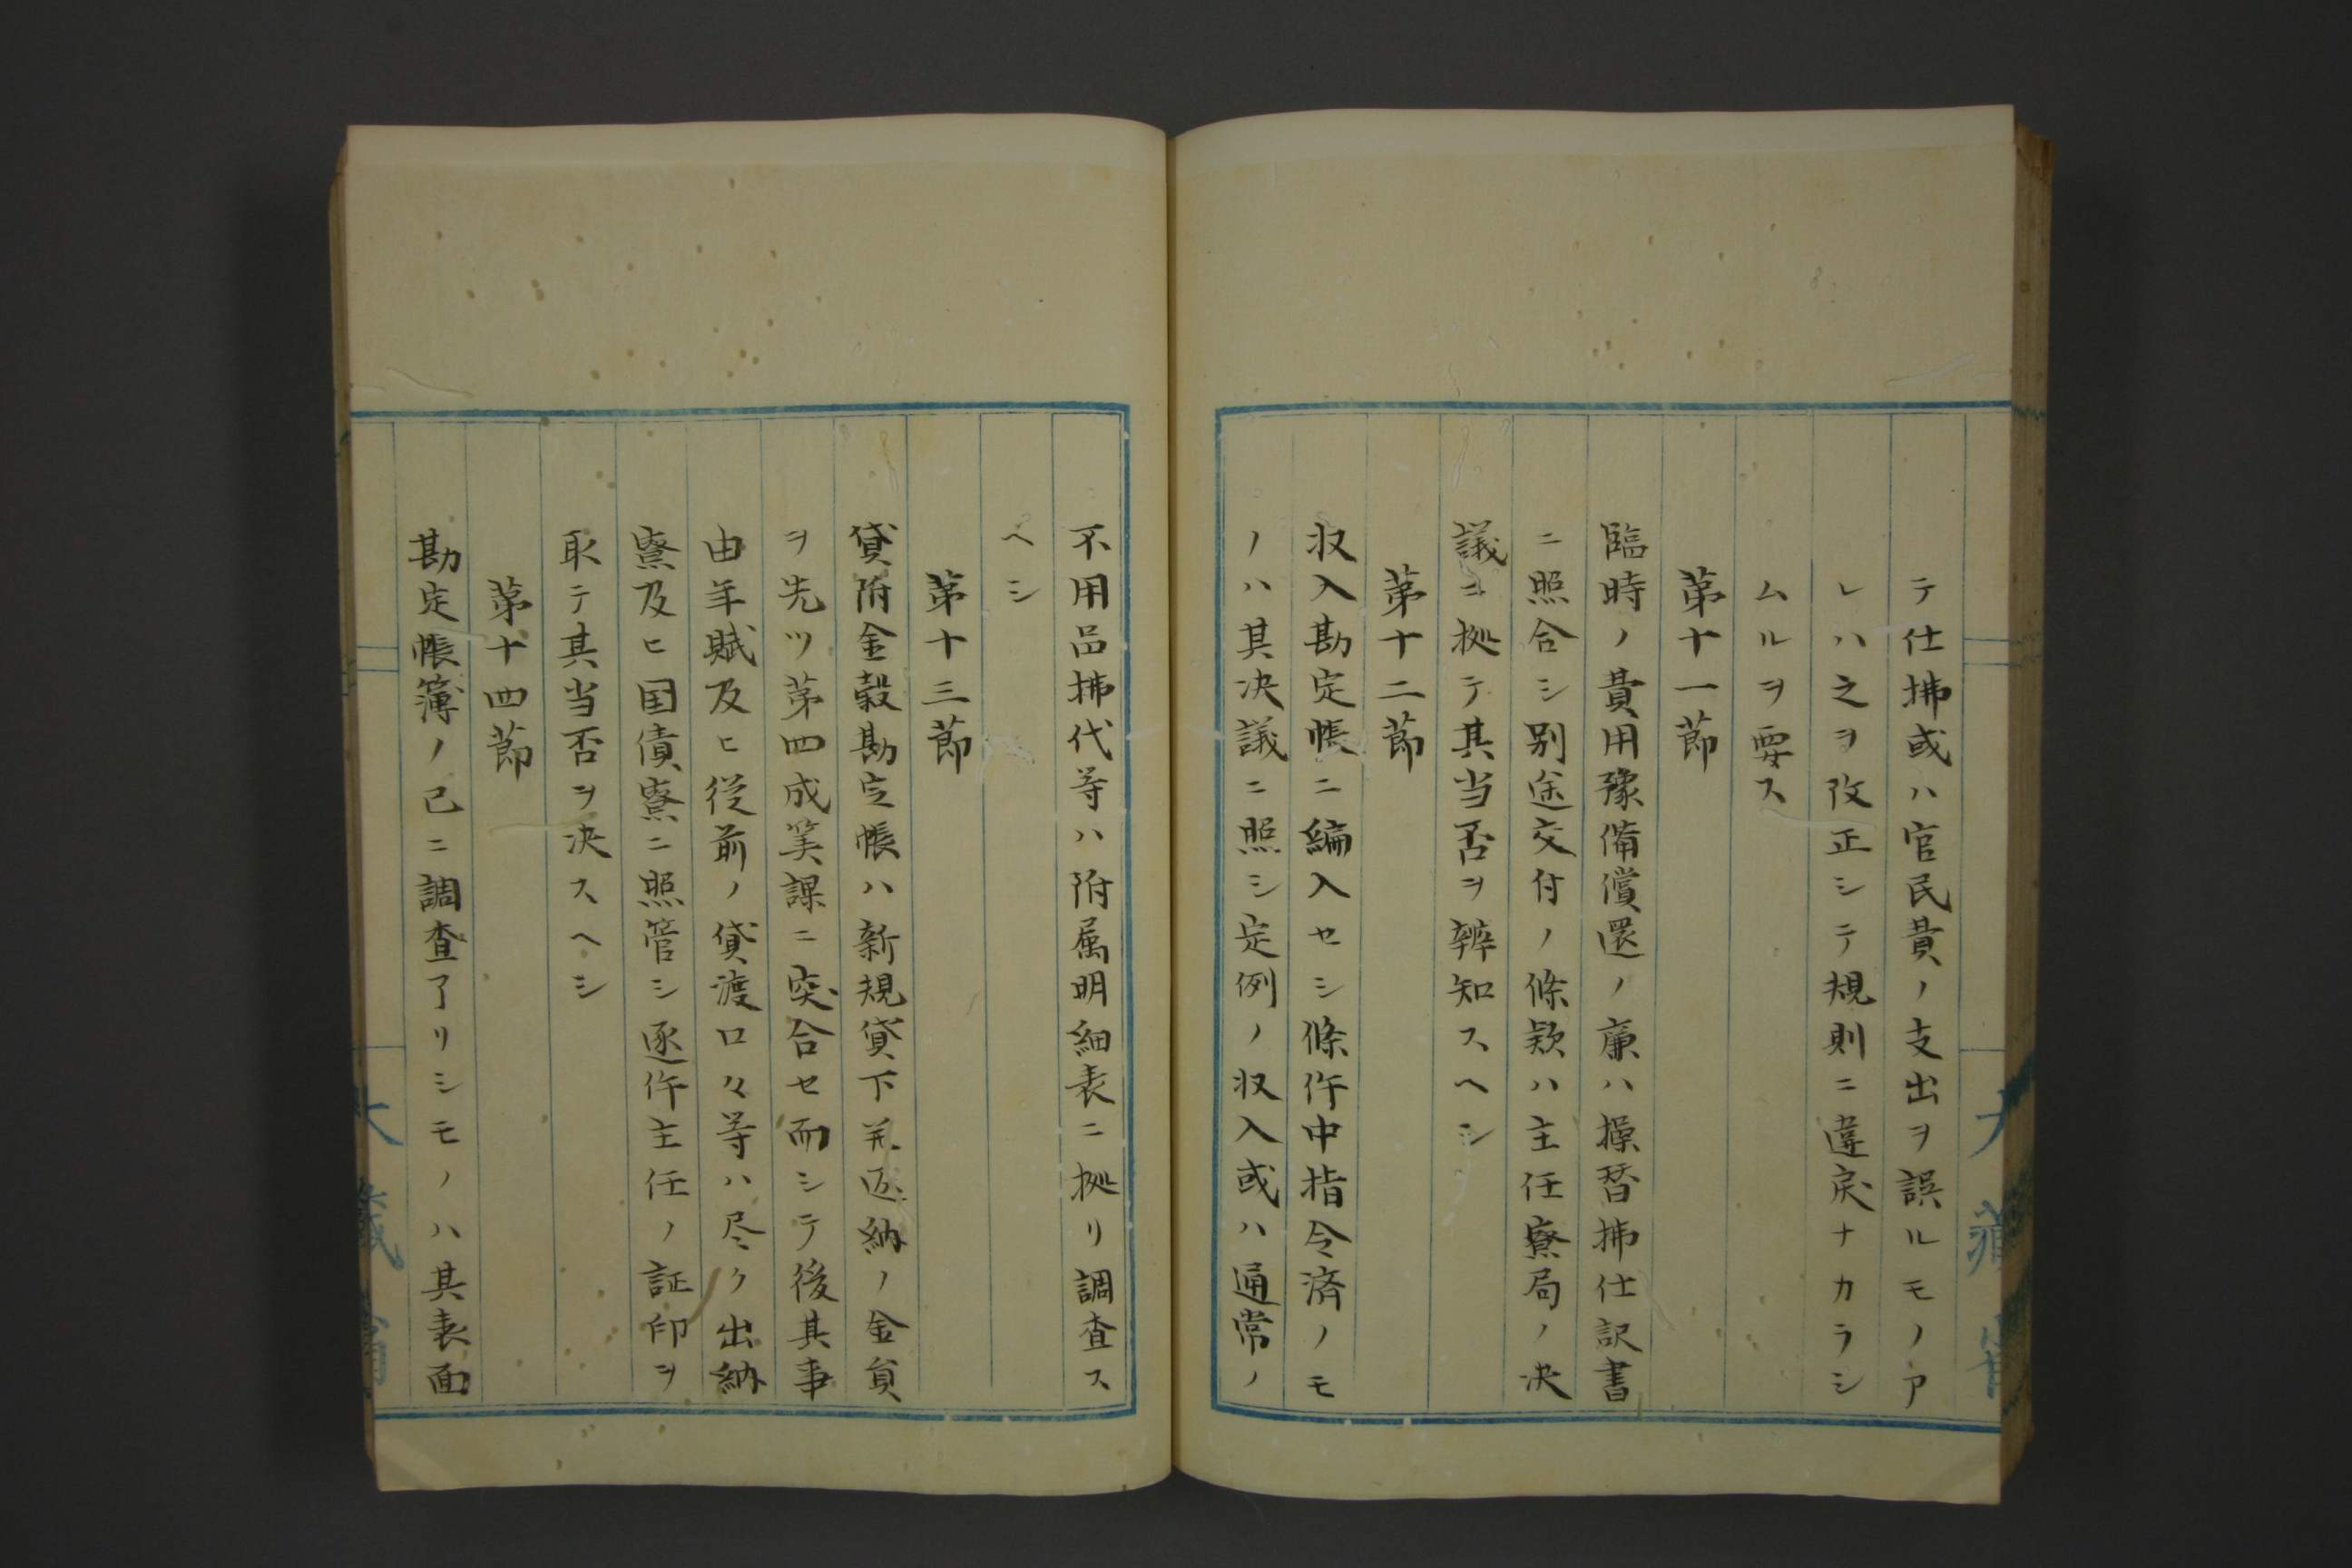 テ仕拂或ハ官民費ノ支出ヲ誤ルモノア
レハ之ヲ改正シテ規則ニ違戻ナカラシ
ムルヲ要ス
第十一節
臨時ノ費用豫備償還ノ廉ハ操替拂仕訳書
ニ照合シ別途交付ノ條款ハ主任寮局ノ決
議ニ拠テ其当否ヲ辨知スヘシ
第十二節
収入勘定帳ニ編入セシ條件中指令済ノモ
ノハ其决議ニ照シ定例ノ収入或ハ通常ノ
不用品拂代等ハ附属明細表ニ拠リ調査ス
ヘシ
第十三節
貸附金穀勘定帳ハ新規貸下并返納ノ金員
ヲ先ツ第四成美課ニ突合セ而シテ後其事
由年賦及ヒ従前ノ貸渡口々等ハ尽ク出納
寮及ヒ国債寮ニ照管シ逐件主任ノ証印ヲ
取テ其当否ヲ決スヘシ
第十四節
勘定帳簿ノ已ニ調査了リシモノハ其表面
大藏省